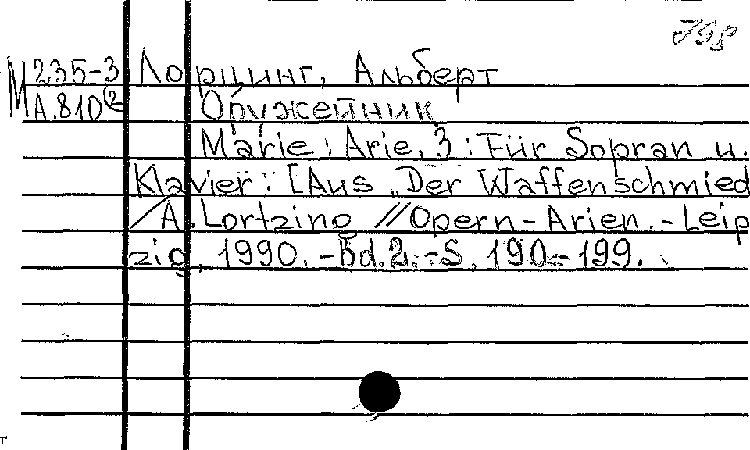 М 235-3 Лорцинг, Альберт
А.810(2 Оружейник
Marie: Arie, 3: Für Sopran u.
Klavier: [Aus „Der Waffenschmied
/A. Lortzing // Opern-Arien.-Leip
zig, 1990.-Bd.2.-S. 190-199.